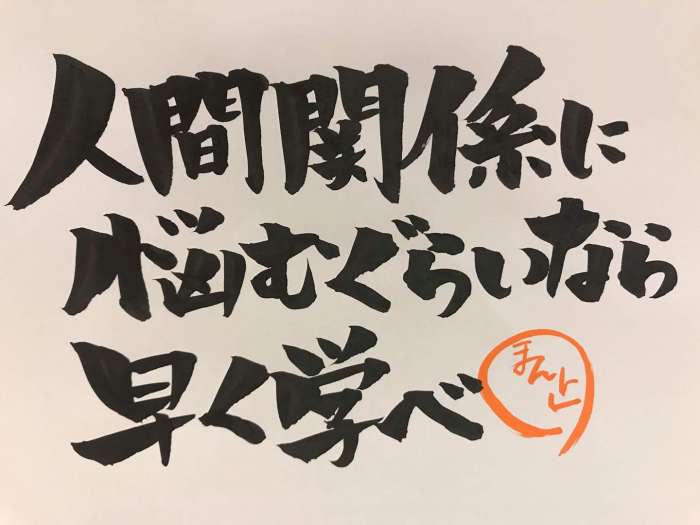 人間関係に
悩むぐらいなら
早く学べ
まんとし